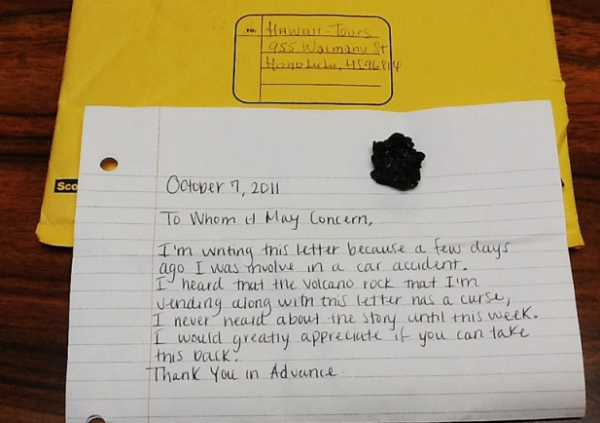 TO:
Hawaii-Tours
955 Waimanu St
Honolulu, HI 96814
Sco
October 7, 2011
To Whom it May Concern,
I'm writing this letter because a few days
ago I was involve in a car accident.
I heard that the volcano rock that I'm
sending along with this letter has a curse,
I never heard about the story until this week.
I would greatly appreciate if you can take
this back.
Thank You in Advance.